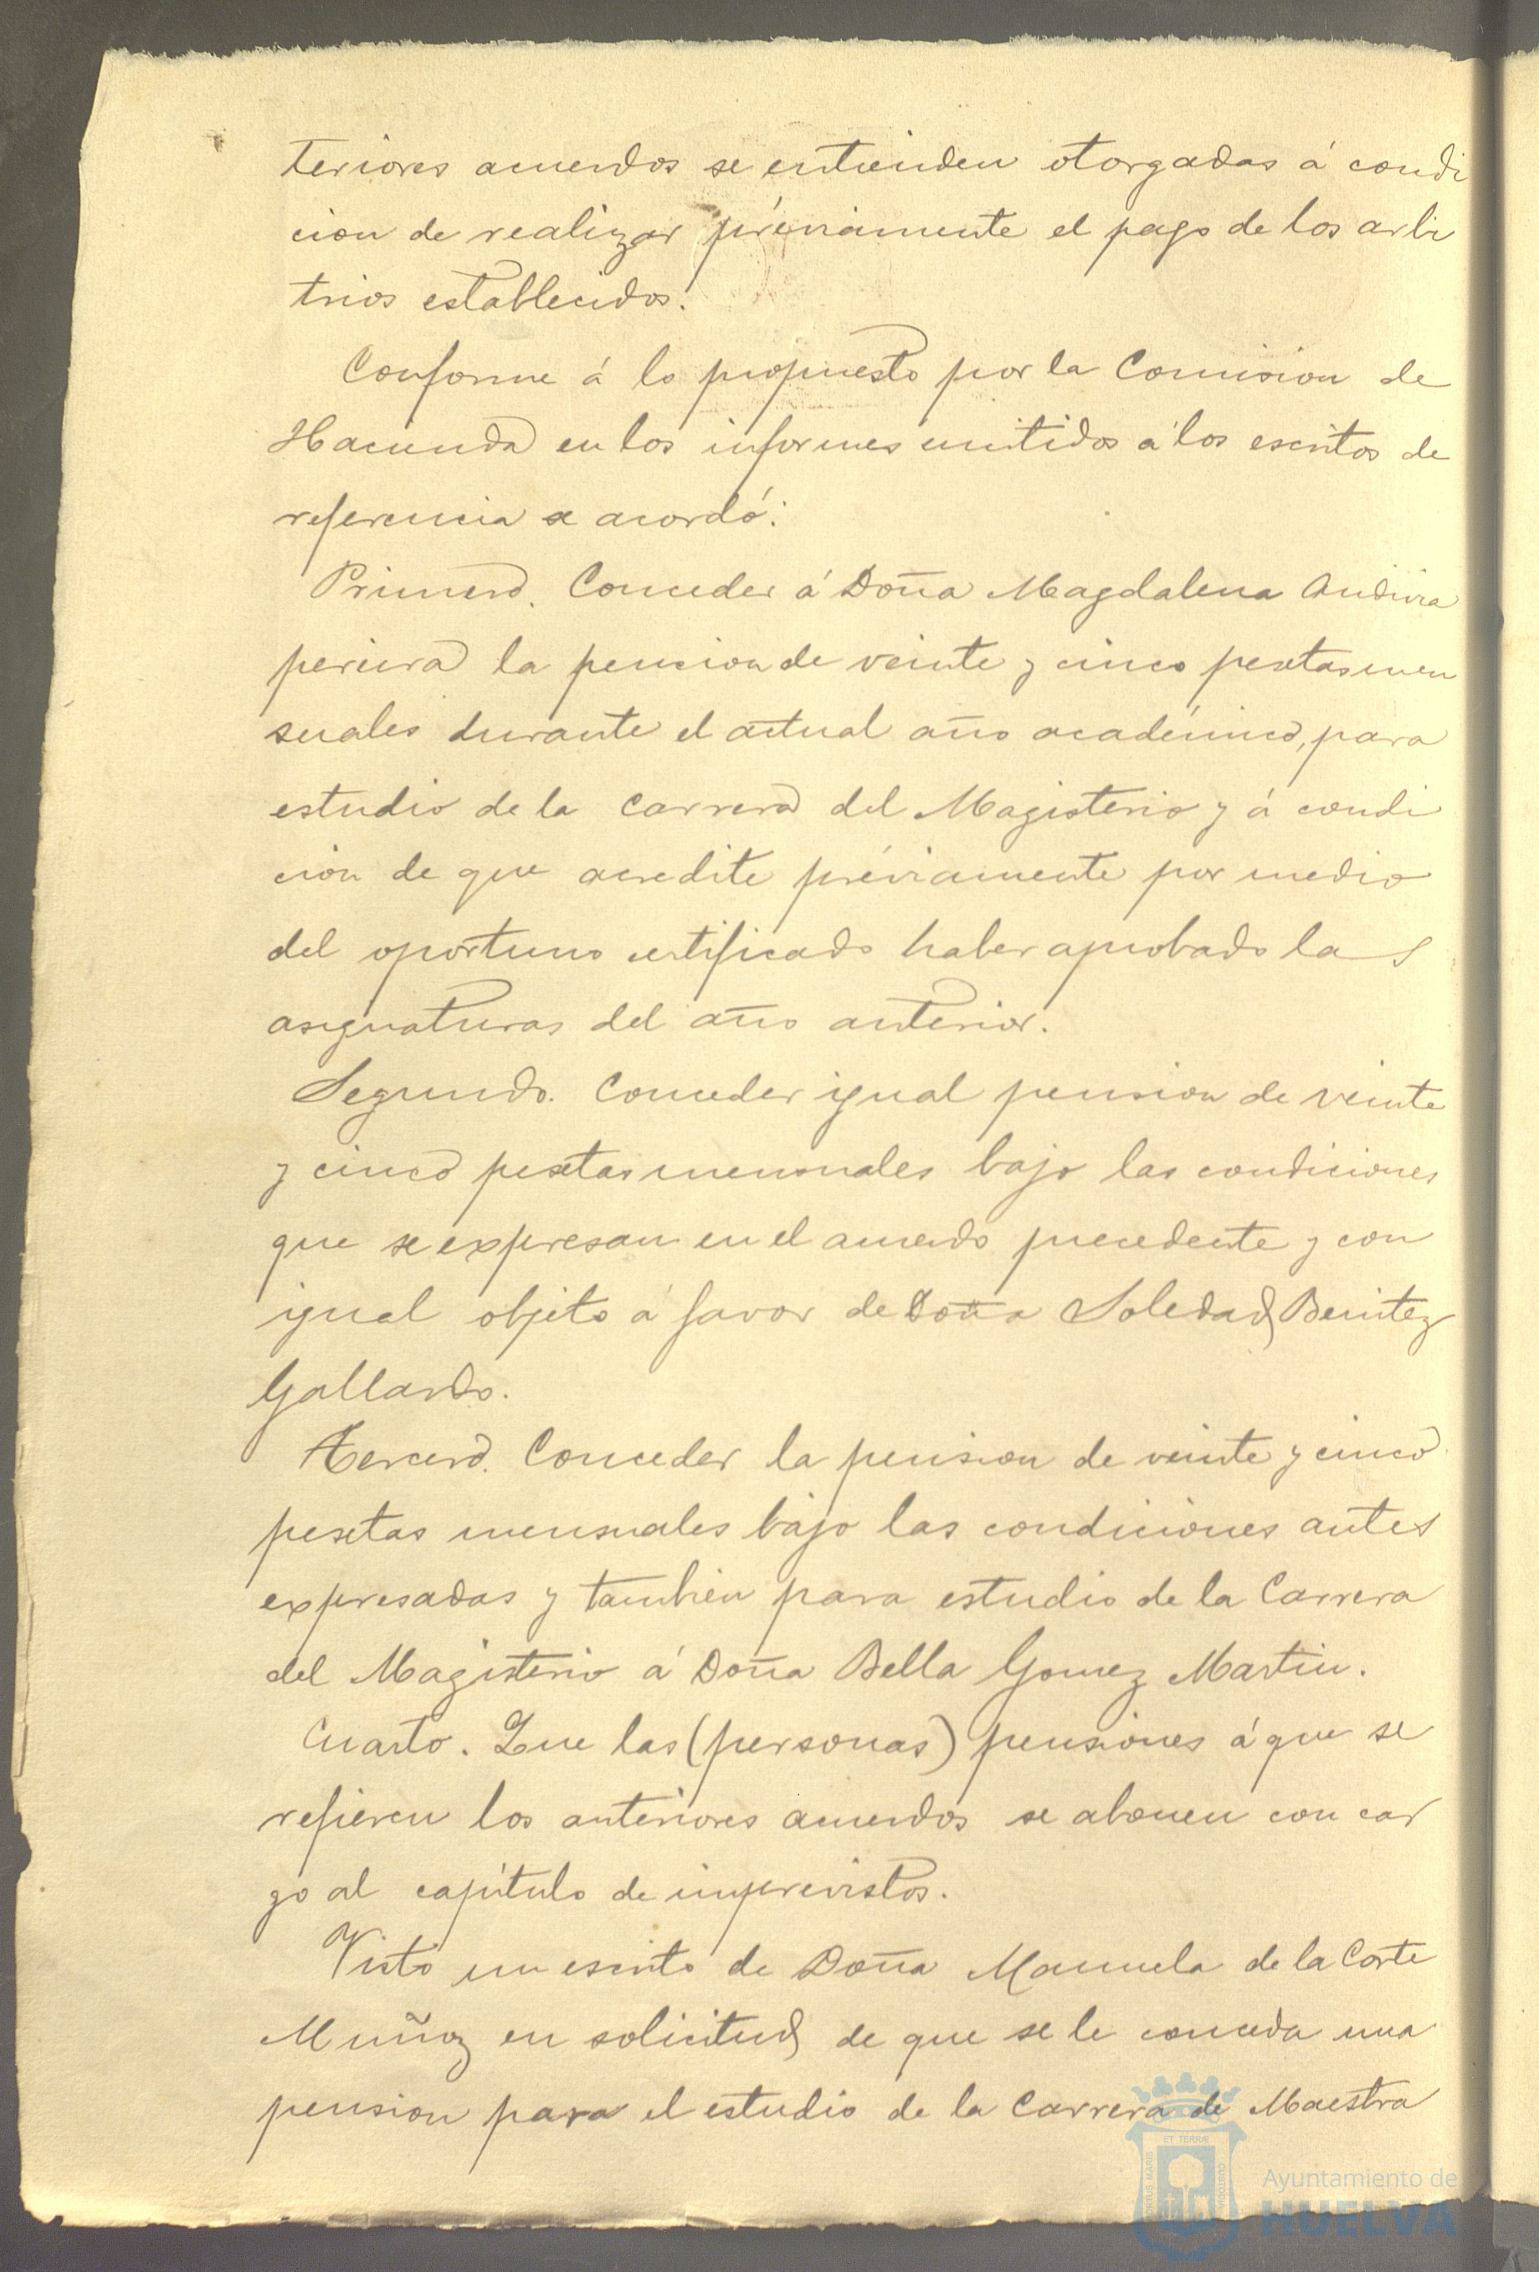 teriores acuerdos se entienden otorgadas á condi
cion de realizar préviamente el pago de los arbi
trios establecidos.
Conforme á lo propuesto por la Comision de
Hacienda en los informes emitidos á los escritos de
referencia se acordó:
Primero. Conceder á Doña Magdalena Andivia
periera la pencion de veinte y cinco pesetas men
suales durante el actual año académico, para
estudio de la Carrera del Magisterio y á condi
cion de que acredite préviamente por medio
del oportuno certificado haber aprobado las
asignaturas del año anterior.
Segundo. Conceder igual pension de veinte
y cinco pesetas mensuales bajo las condiciones
que se expresan en el acuerdo precedente y con
igual objeto á favor de Doña Soledad Benitez
Gallardo.
Tercero. Conceder la pension de veinte y cinco
pesetas mensuales bajo las condiciones antes
expresadas y tambien para estudio de la Carrera
del Magisterio á Doña Bella Gomez Martin.
Cuarto. Que las (personas) pensiones á que se
refieren los anteriores acuerdos se abonen con car
go al capítulo de imprevistos.
Visto un escrito de Doña Manuela de la Corte
Muñoz en solicitud de que se le conceda una
pension para el estudio de la Carrera de Maestra
ET TERRÆ
PORTUS MARIS
CUSTODIA
Ayuntamiento de
HUELVA